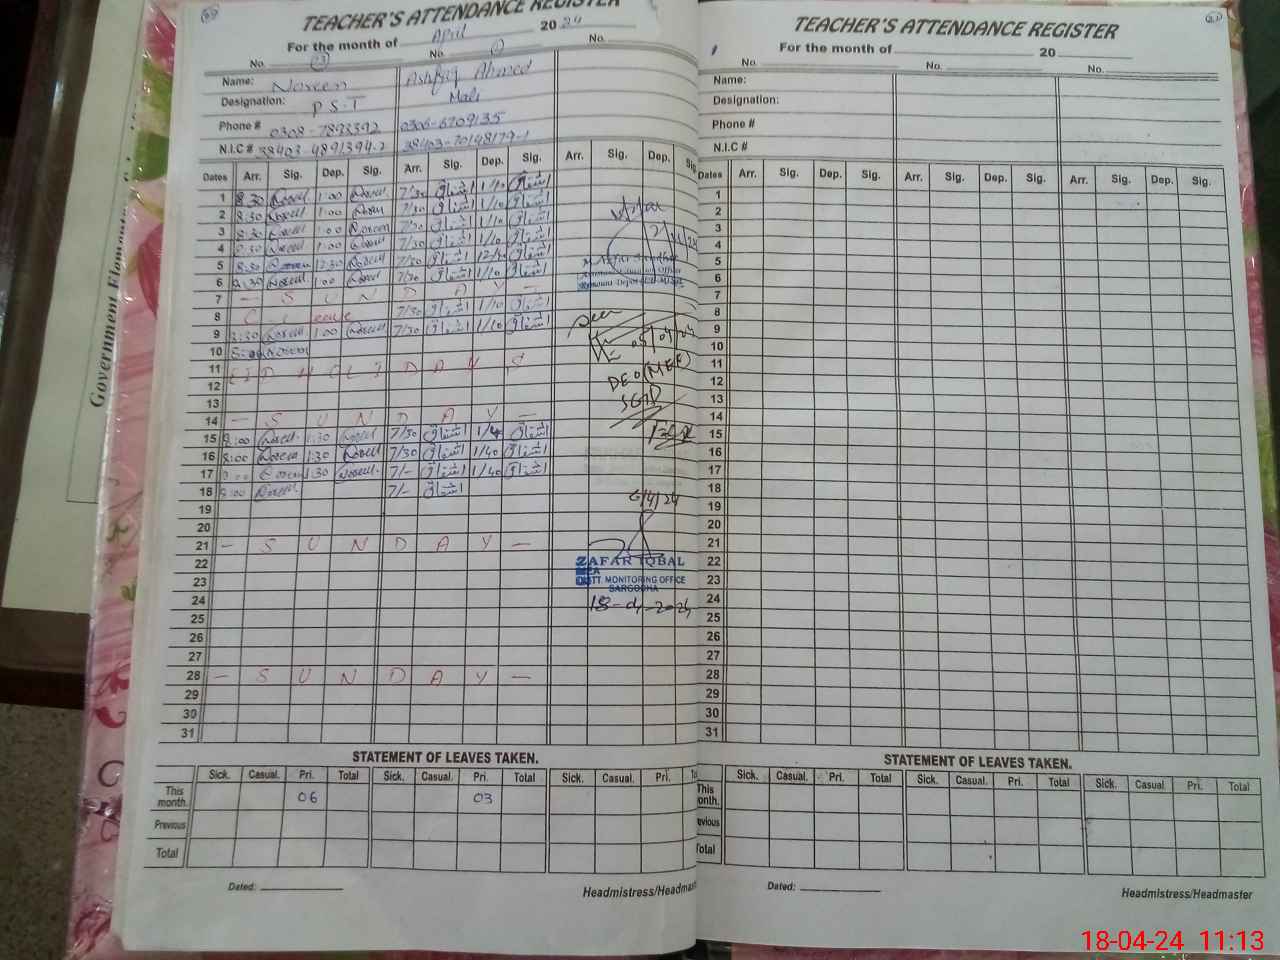 TEACHER'S ATTENDANCE REGISTER
For the month of April 2024
No. 23 No. 1 No.
Name: Noreen Ashfaq Ahmed
Designation: P.S.T Mali
Phone # 0308-7893392 0306-6709135
N.I.C # 38403-4891394-2 38403-70148179-1
Dates Arr. Sig. Dep. Sig. Arr. Sig. Dep. Sig. Arr. Sig. Dep. Sig.
1 8:30 Noreen 1:00 Noreen 7/30 اشفاق 1/10 اشفاق
2 8:30 Noreen 1:00 Noreen 7/30 اشفاق 1/10 اشفاق
3 8:30 Noreen 1:00 Noreen 7/30 اشفاق 1/10 اشفاق
4 8:30 Noreen 1:00 Noreen 7/30 اشفاق 1/10 اشفاق
5 8:30 Noreen 12:30 Noreen 7/30 اشفاق اشفاق
6 8:30 Noreen 1:00 Noreen 7/30 اشفاق 1/10 اشفاق
7 — S U N D A Y —
8 C. Leave 7/30 اشفاق 1/10 اشفاق
9 8:30 Noreen 1:00 Noreen 7/30 اشفاق 1/10 اشفاق
10 8:00 Noreen
11 EID HOLIDAYS
12
13
14 — S U N D A Y —
15 8:00 Noreen 1:30 Noreen 7/30 اشفاق 1/4 اشفاق
16 8:00 Noreen 1:30 Noreen 7/30 اشفاق 1/40 اشفاق
17 8:00 Noreen 1:30 Noreen 7/- اشفاق 1/40 اشفاق
18 8:00 Noreen 7/- اشفاق
19
20
21 — S U N D A Y —
22
23
24
25
26
27
28 — S U N D A Y —
29
30
31
Seen
05/04/24
DEO(MEE)
SGD
6/4/24
ZAFAR IQBAL
MEA
DISTT. MONITORING OFFICE
SARGODHA
18-04-2024
STATEMENT OF LEAVES TAKEN.
Sick. Casual. Pri. Total Sick. Casual. Pri. Total Sick. Casual. Pri. To
This month. 06 03
Previous
Total
Dated:
Headmistress/Headmast
TEACHER'S ATTENDANCE REGISTER
For the month of 20
No. No. No.
Name:
Designation:
Phone #
N.I.C #
Dates Arr. Sig. Dep. Sig. Arr. Sig. Dep. Sig. Arr. Sig. Dep. Sig.
1
2
3
4
5
6
7
8
9
10
11
12
13
14
15
16
17
18
19
20
21
22
23
24
25
26
27
28
29
30
31
STATEMENT OF LEAVES TAKEN.
Sick. Casual. Pri. Total Sick. Casual. Pri. Total Sick. Casual. Pri. Total
This month.
Previous
Total
Dated:
Headmistress/Headmaster
Government Elementary
18-04-24 11:13